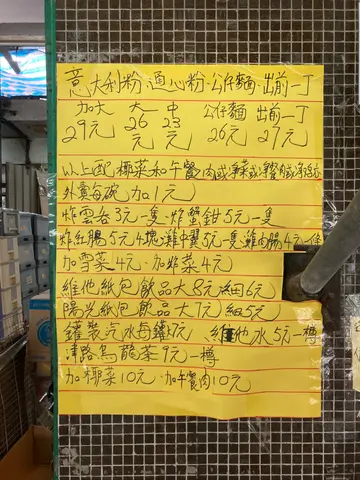 意大利粉.通心粉.公仔麵.出前一丁
加大 大 中 公仔麵 出前一丁
29元 26元 23元 26元 27元
以上配 椰菜和午餐肉或
外賣每碗 加1元
炸雲吞3元一隻.炸蟹鉗5元一隻
炸紅腸5元4塊.雞中翼5元一隻.雞肉腸4元一條
加雪菜4元.加炸菜4元
維他紙包飲品大8元細6元
陽光紙包飲品大7元細5元
罐裝汽水每罐7元 維他水5元一樽
津路烏龍茶9元一樽
加椰菜10元.加午餐肉10元